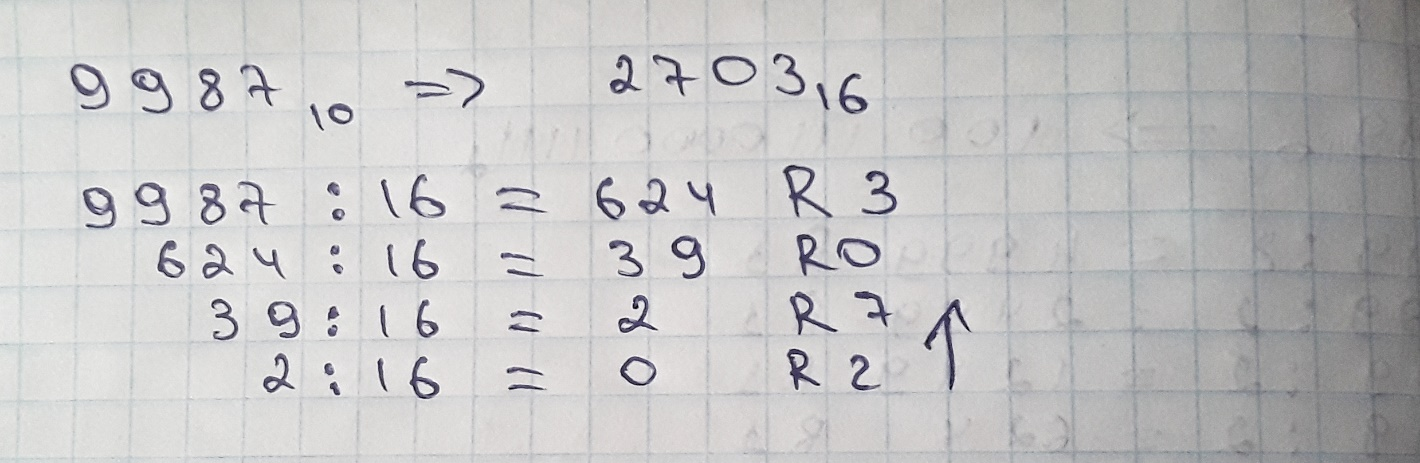 9987₁₀ => 2703₁₆
9987 : 16 = 624 R 3
624 : 16 = 39 R0
39 : 16 = 2 R 7
2 : 16 = 0 R 2 ↑